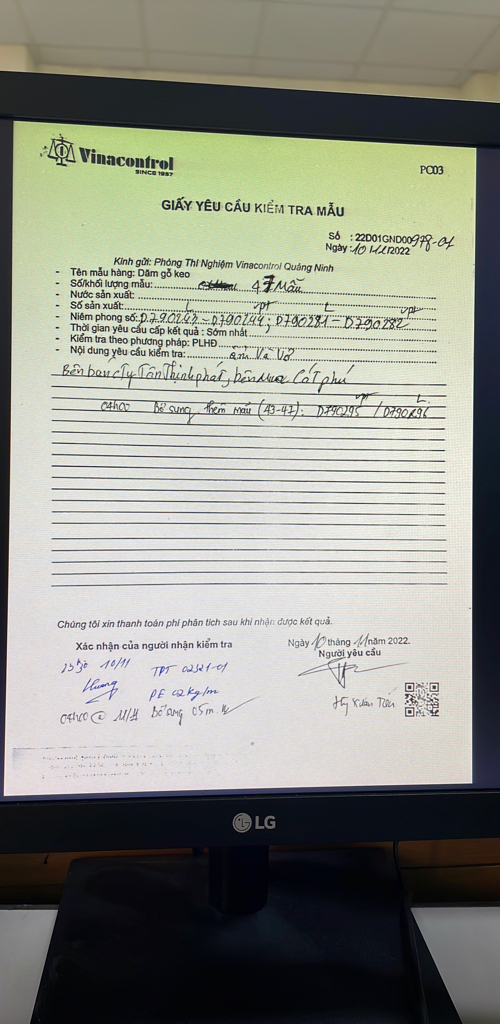 Vinacontrol
SINCE 1957
PC03
GIẤY YÊU CẦU KIỂM TRA MẪU
Số : 22D01GND00978-01
Ngày: 10/11/2022
Kính gửi: Phòng Thí Nghiệm Vinacontrol Quảng Ninh
- Tên mẫu hàng: Dăm gỗ keo
- Số/khối lượng mẫu: 47 Mẫu
- Nước sản xuất:
- Số sản xuất:
L vpt L vpt
- Niêm phong số: D790243 - D790244; D790281 - D790282
- Thời gian yêu cầu cấp kết quả : Sớm nhất
- Kiểm tra theo phương pháp: PLHĐ
- Nội dung yêu cầu kiểm tra: ẩm Và Vỏ
Bên bán cty Tân Thịnh phát, bên mua Cát phú
vpt L
04h00 Bổ sung thêm mẫu (43-47): D790295 / D790296
Chúng tôi xin thanh toán phí phân tích sau khi nhận được kết quả.
Xác nhận của người nhận kiểm tra
Ngày 10 tháng 11 năm 2022.
Người yêu cầu
10/11 TPT 02321-01
PE 02kg/m
04h00 @ 11/11 Bổ sung 05m
LG